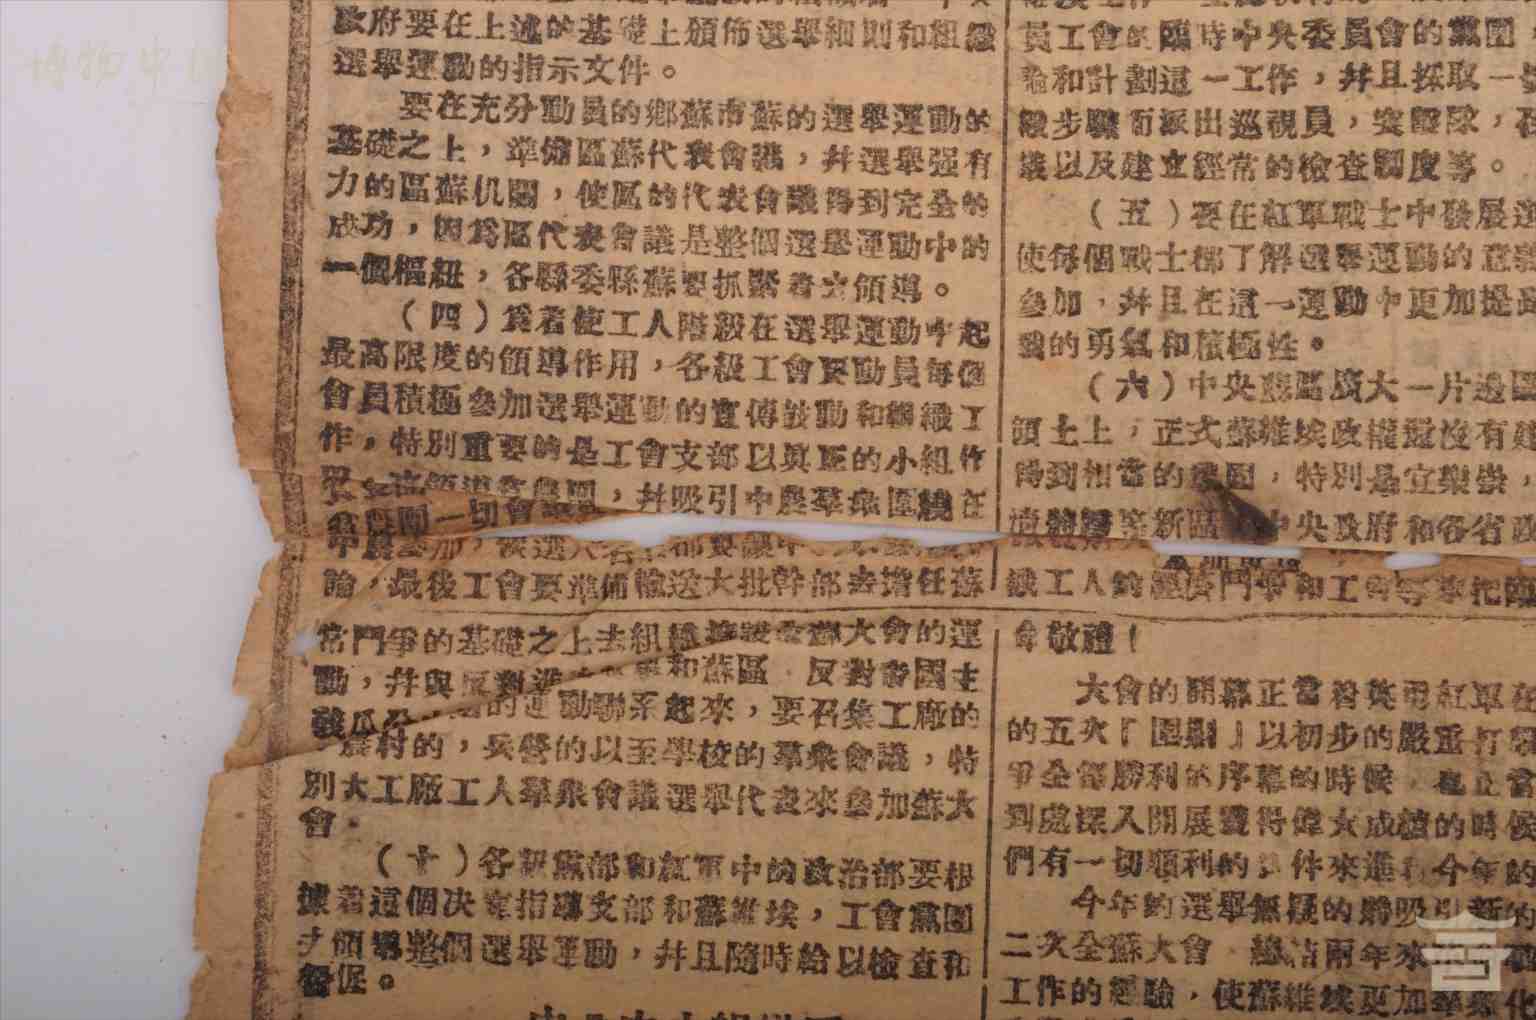 政府要在上述的基礎上頒佈選舉細則和組織
選舉運動的指示文件。
要在充分動員的鄉蘇市蘇的選舉運動的
基礎之上，準備區蘇代表會議，并選舉强有
力的區蘇机關，使區的代表會議得到完全的
成功，因爲區代表會議是整個選舉運動中的
一個樞紐，各縣委縣蘇要抓緊着去領導。
（四）爲着使工人階級在選舉運動中起
最高限度的領導作用，各級工會要動員每個
會員積極參加選舉運動的宣傳鼓動和組織工
作，特別重要的是工會支部以眞正的小組作
，并吸引中農羣衆圍繞在
論，最後工會要準備輸送大批幹部去擔任蘇
常鬥爭的基礎之上去組織擁護全蘇大會的運
動，并與反對進 和蘇區 反對帝國主
義瓜分 的運動聯系起來，要召集工廠的
農村的，兵營的以至學校的羣衆會議，特
別大工廠工人羣衆會議選舉代表來參加蘇大
會。
（十）各級黨部和紅軍中的政治部要根
據着這個决定指導支部和蘇維埃，工會黨團
去領導整個選舉運動，并且隨時給以檢查和
督促。
員工會的臨時中央委員會的黨團，
論和計劃這一工作，并且採取一
緻步驟而派出巡視員，突擊隊，在
議以及建立經常的檢查制度等。
（五）要在紅軍戰士中發展選
使每個戰士都了解選舉運動的意義
參加，并且在這一運動中更加提高
戰的勇氣和積極性。
（六）中央蘇區廣大一片邊區
領土上，正式蘇維埃政權還沒有建
得到相當的鞏固，特別是宜樂崇，
新區 中央政府和各省政
織工人的經濟鬥爭和工會等事把臨
命敬禮！
大會的開幕正當着英勇紅軍在
的五次「圍剿」以初步的嚴重打擊
爭全部勝利的序幕的時候 也正當
到處深入開展獲得偉大成績的時候
們有一切順利的條件來進行今年的
今年的選舉無疑的將吸引新的
二次全蘇大會 總結兩年來
工作的經驗，使蘇維埃更加羣衆化